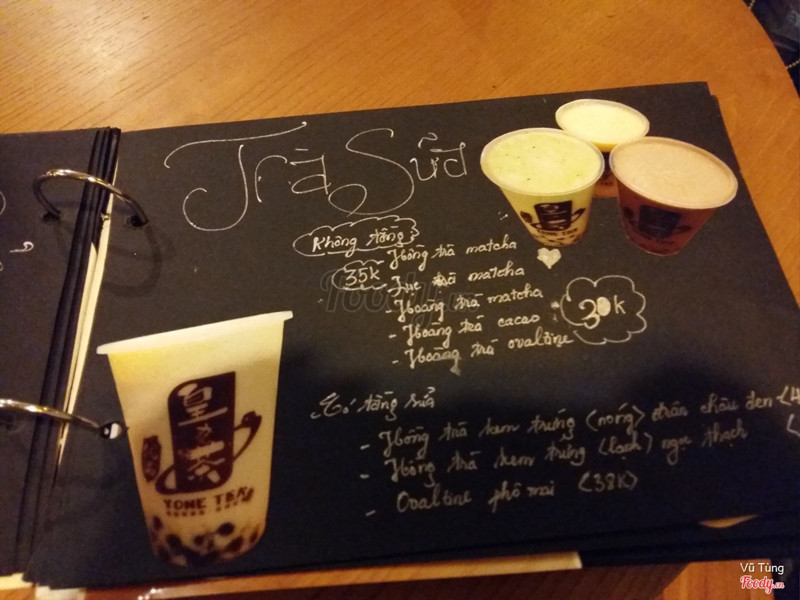 Trà Sữa
Không tầng
35k
- Hồng trà matcha
- Lục trà matcha
- Hoàng trà matcha
- Hoàng trà cacao
- Hoàng trà ovaltine
30k
Có tầng sữa
- Hồng trà kem trứng (nóng) trân châu đen
- Hồng trà kem trứng (lạnh) ngọc thạch
- Ovaltine phô mai (38k)
皇茶
TONE TEA
Foody.vn
Vũ Tùng
Foody.vn